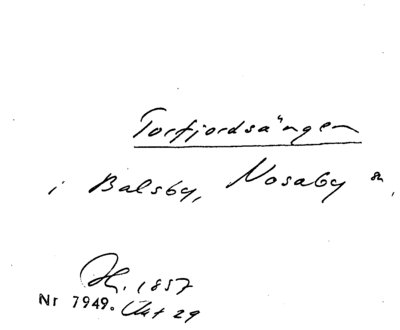 Torfjordsängen
i Balsby, Nosaby sn,
1857
Nr 7949. Akt 29